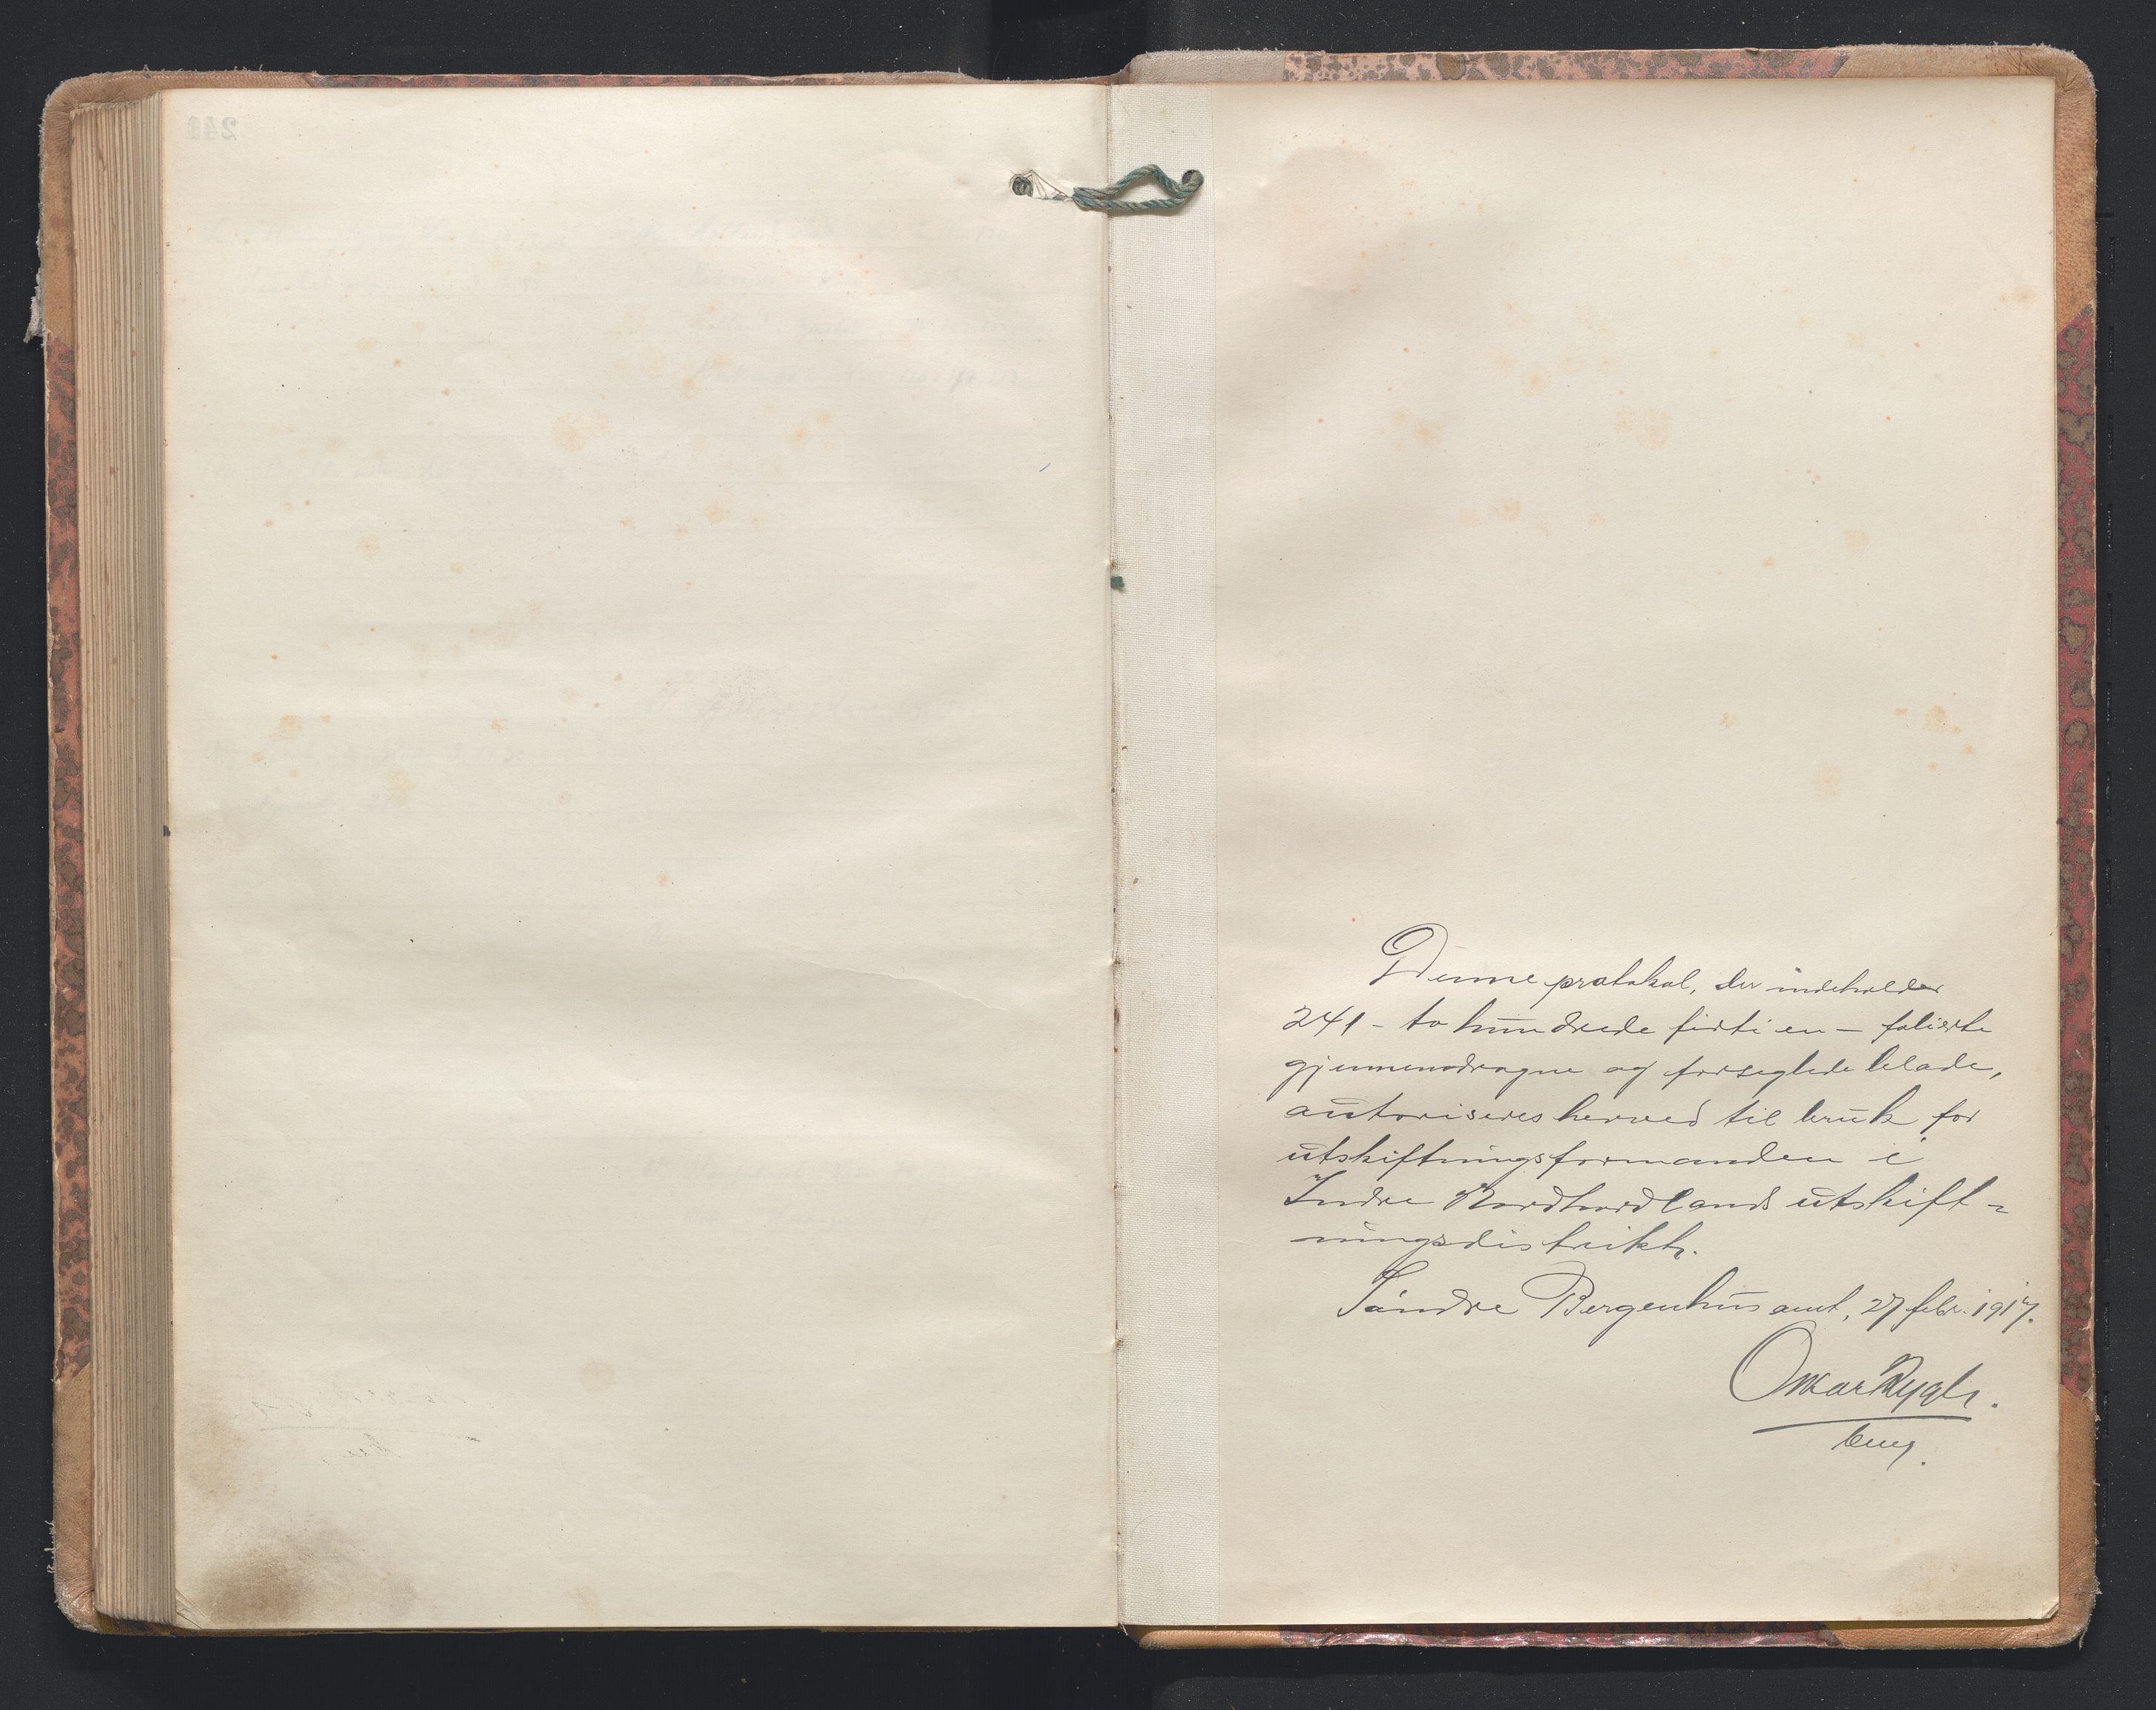 Denne protokol, der indeholder
241 - to hundrede firti en - folierte
gjennemdragne og forseglede blade,
autoriseres herved til bruk for
utskiftningsformanden i
Indre Nordhordlands utskift-
ningsdistrikt.
Søndre Bergenhus amt, 27 febr. 1917.
Oskar Rygh.